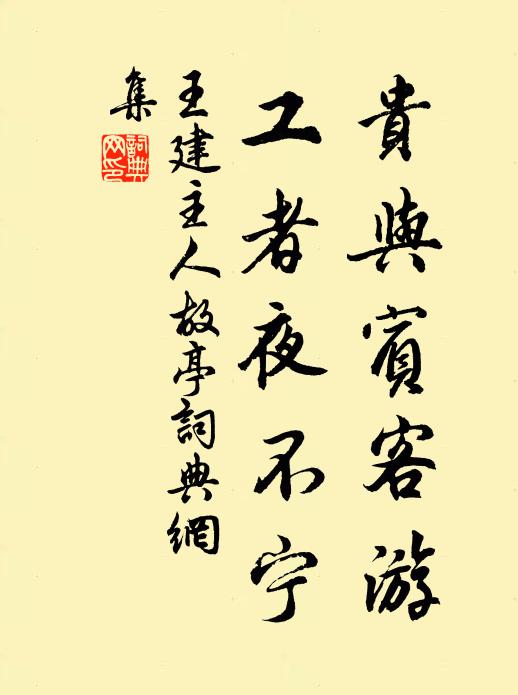 貴與賓客游
工者夜不宁
王建主人故亭詞典網
集
詞典
网印